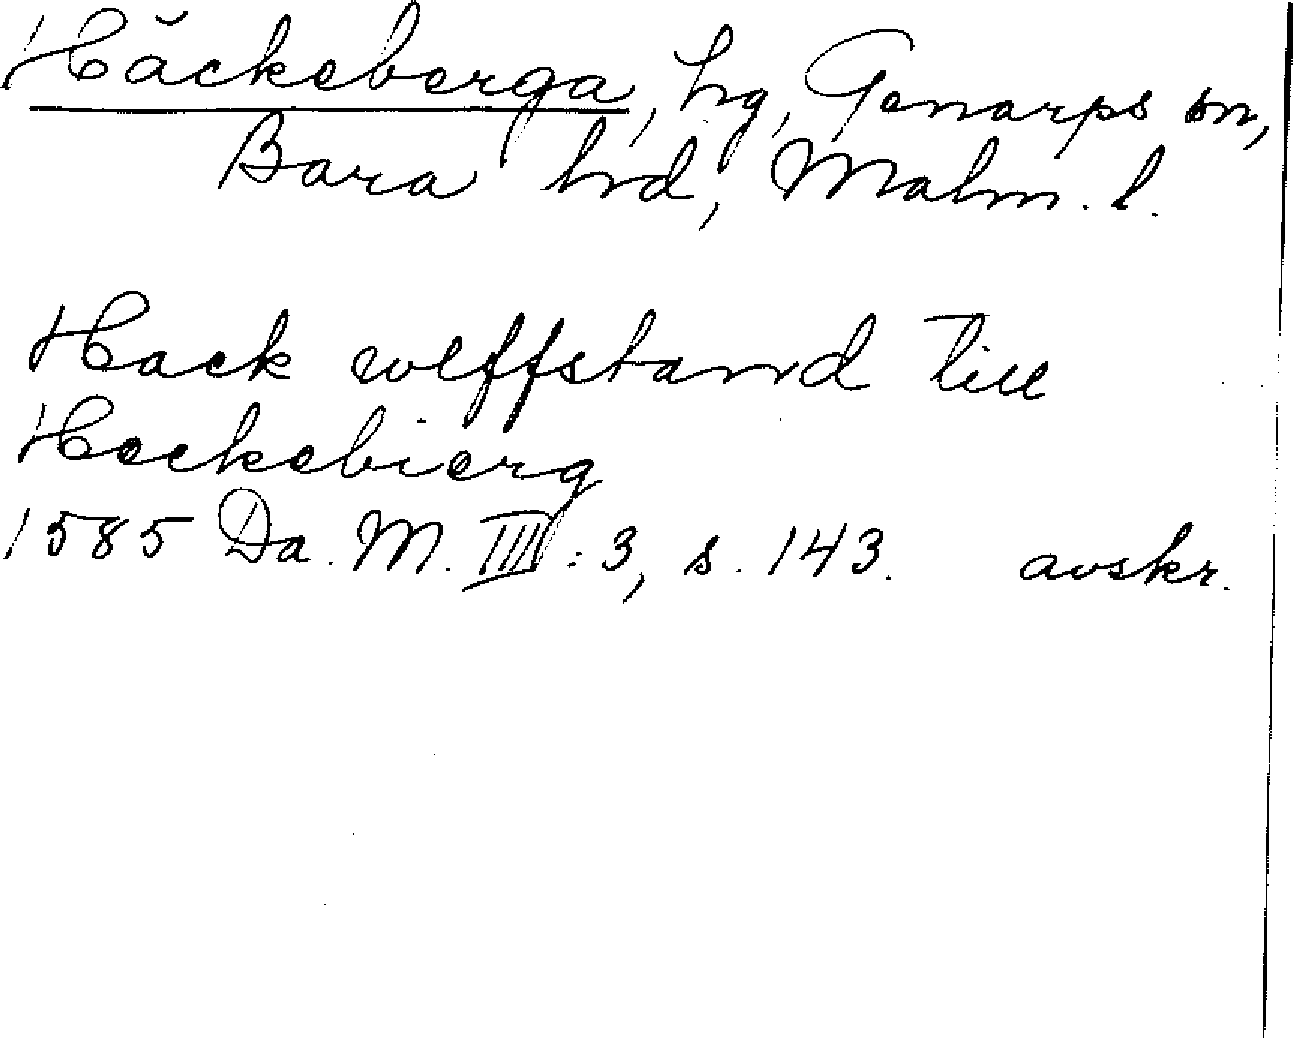 Häckeberga, hg, Genarps sn,
Bara hrd, Malm. l.
Hack wlffstannd till
Heckebierg
1585 Da. M. III: 3, s. 143. avskr.